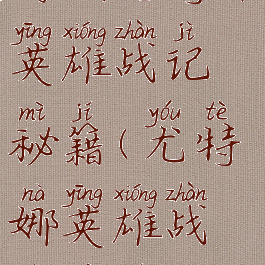 yīng xióng zhàn jì
英雄战记
mì jí yóu tè
秘籍(尤特
nà yīng xióng zhàn
娜英雄战